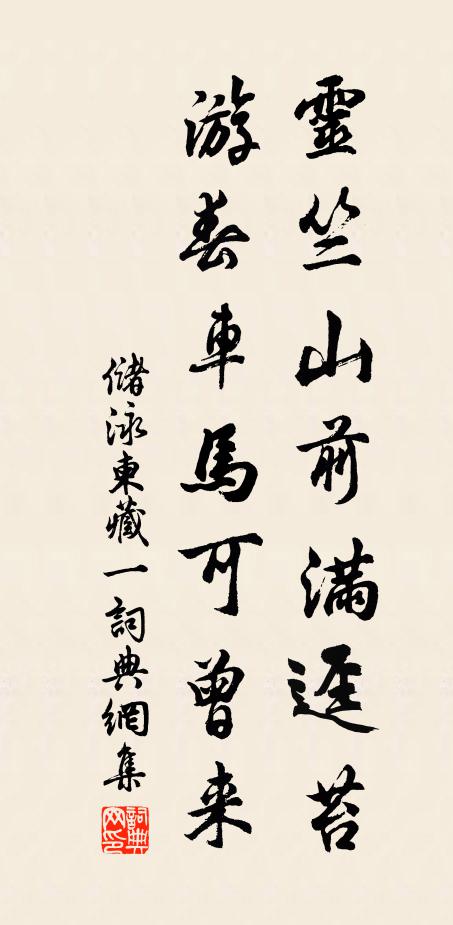 靈竺山前滿逕苔
游春車馬可曾来
儲泳東藏一詞典網集
詞典網印